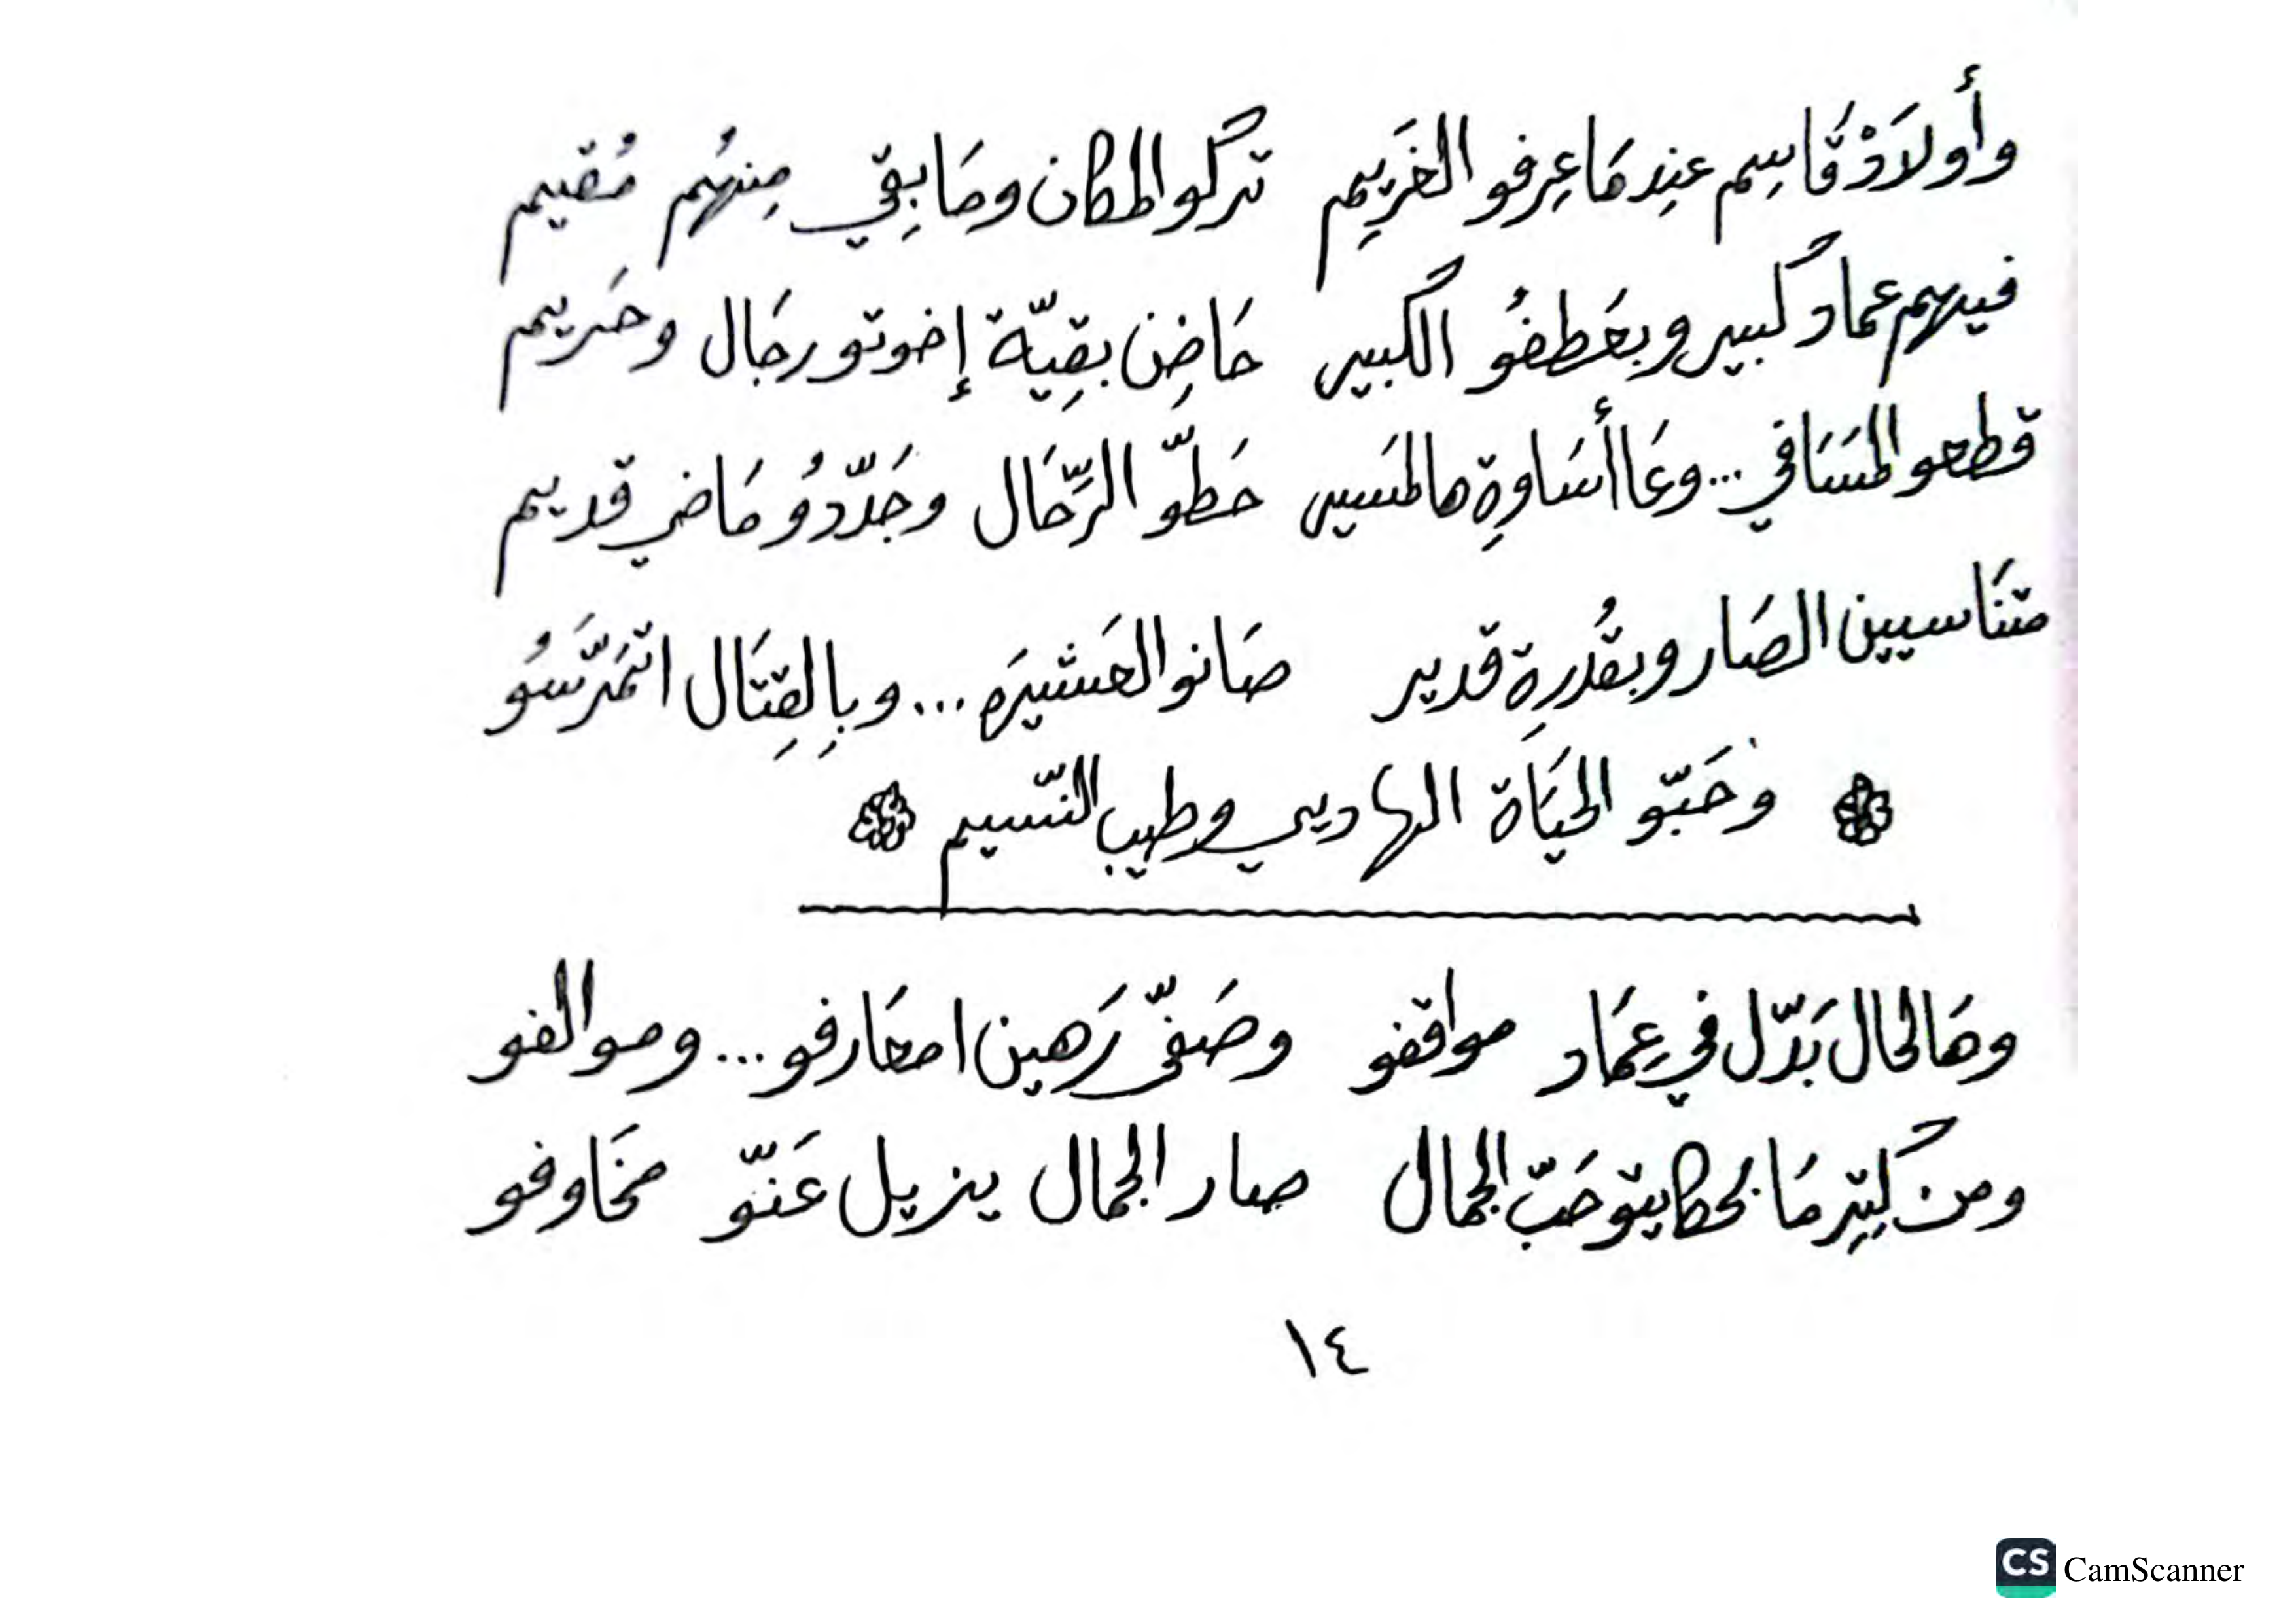 وأولَادْ قَاسِم عنِدمَا عِرفو الغَرِيم تركُو المكان ومَا بِقِي مِنهُم مُقيم
فيهم عماد كُبير وبعَطفُو الكُبير حَاضِن بقِيّة إخوتو رجَال وحَريم
قطعو المسَافي...وعَا أسَاوِة هالمَسير حَطّو الرِّحَال وجَدّدوُ مَاضي قديم
متنَاسيين الصَار وبقُدرِة قدير صَانو العَشيرَه...وبِالقِتَال اتمَرّسُو
وحَبّو الحيَاة الهاديي وطيب النّسيم
وهَالحال بَدّل في عِمَاد مواقفو وصَفّى رَهين امعَارفو...وموالفو
ومن كُتِر مَا بحكايتو حَبّ الجمال صار الجمال يزيل عَنّو مخَاوفو
١٤
CS CamScanner